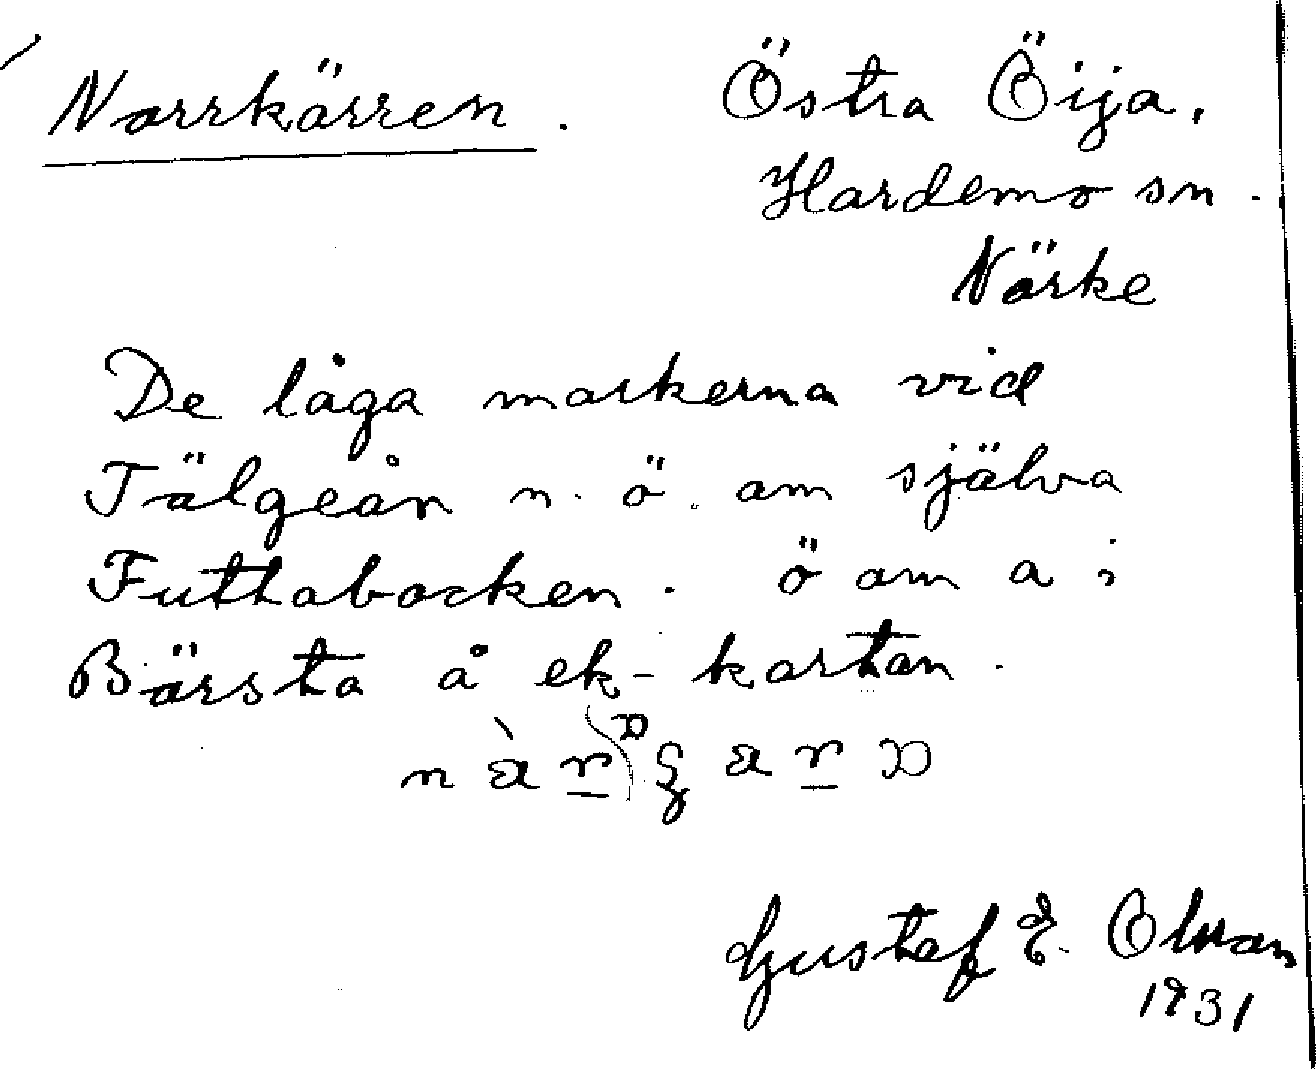 Norrkärren.
Östra Öija,
Hardemo sn.
Närke
De låga markerna vid
Tälgeån n. ö. om själva
Futtabocken. ö om a i
Bärsta å ek-kartan.
Gustaf E. Olsson
1931